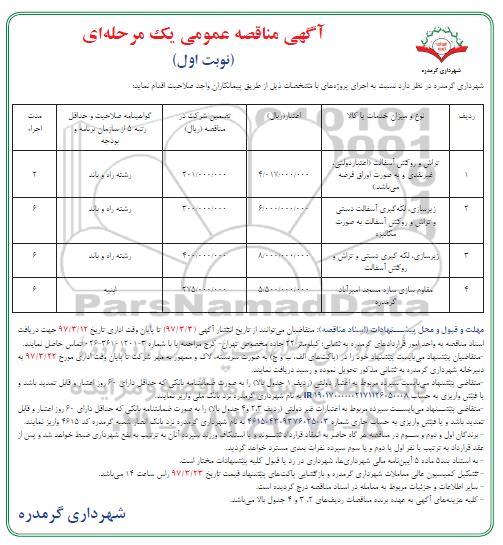 آگهی مناقصه عمومی یک مرحله‌ای
(نوبت اول)
شهرداری گرمدره
شهرداری گرمدره در نظر دارد نسبت به اجرای پروژه‌های با مشخصات ذیل از طریق پیمانکاران واجد صلاحیت اقدام نماید:
ردیف نوع و میزان خدمات یا کالا اعتبار(ریال) تضمین شرکت در مناقصه (ریال) گواهینامه صلاحیت و حداقل رتبه ۵ از سازمان برنامه و بودجه مدت اجراء
۱ تراش و روکش آسفالت (اعتباردولتی، غیرنقدی و به صورت اوراق قرضه می‌باشد) ۴/۰۱۷/۰۰۰/۰۰۰ ۲۰۱/۰۰۰/۰۰۰ رشته راه و باند ۲
۲ زیرسازی، لکه‌گیری آسفالت دستی و تراش و روکش آسفالت به صورت مکانیزه ۶/۰۰۰/۰۰۰/۰۰۰ ۳۰۰/۰۰۰/۰۰۰ رشته راه و باند ۶
۳ زیرسازی، لکه گیری دستی و تراش و روکش آسفالت ۸/۰۰۰/۰۰۰/۰۰۰ ۴۰۰/۰۰۰/۰۰۰ رشته راه و باند ۶
۴ مقاوم سازی سازه مسجد امیرآباد گرمدره ۵/۵۰۰/۰۰۰/۰۰۰ ۲۷۵/۰۰۰/۰۰۰ ابنیه ۶
ParsNamadData
مهلت و قبول و محل پیشنهادات (اسناد مناقصه): متقاضیان می‌توانند از تاریخ انتشار آگهی (۹۷/۳/۳) تا پایان وقت اداری تاریخ ۹۷/۳/۱۲ جهت دریافت
اسناد مناقصه به واحد امور قراردادهای گرمدره به نشانی: کیلومتر ۲۲ جاده مخصوص تهران- کرج مراجعه یا با شماره ۳-۳۶۱۰۱۲۰۱-۰۲۶ تماس حاصل نمایند.
-متقاضیان پیشنهاد می‌بایست پیشنهاد خود را در (پاکت‌های الف، ب و ج) به صورت سربسته، لاک و ممهور به مهر شرکت تا پایان وقت اداری مورخ ۹۷/۳/۲۲ به
دبیرخانه شهرداری گرمدره به نشانی مذکور تحویل نموده و رسید دریافت نمایند.
-متقاضی پیشنهاد می‌بایست سپرده مربوط به اعتبار دولتی (ردیف ۱ جدول بالا) را به صورت ضمانتنامه بانکی که حداقل دارای ۶۰ روز اعتبار و قابل تمدید باشد و
یا فیش واریزی به حساب به نام شهرداری گرمدره نزد بانک ملی واریز نمایند.
-متقاضی پیشنهاد می‌بایست سپرده مربوط به اعتبارات غیر دولتی (ردیف ۲،۳ و۴ جدول بالا) را به صورت ضمانتنامه بانکی که حداقل دارای ۶۰ روز اعتبار و قابل
تمدید باشد و یا فیش واریزی به حساب جاری شماره به نام شهرداری گرمدره نزد بانک شعبه گرمدره کد ۴۶۱۵ واریز نمایند.
- برندگان اول و دوم و سوم در مناقصه هر گاه حاضر به انعقاد قرارداد نشوند و یا استنکاف ورزند سپرده آنان به ترتیب به نفع شهرداری ضبط خواهد شد و پس از
عقد قرارداد به ترتیب با نفر اول یا دوم و یا سوم سپرده نفرات بعدی مسترد خواهد گردید.
- به استناد بند۵ ماده ۵ آیین‌نامه مالی شهرداری‌ها، شهرداری در رد یا قبول کلیه پیشنهادات مختار است.
-تشکیل کمیسیون عالی معاملات شهرداری گرمدره و بازگشایی پاکت‌های پیشنهاد قیمت تاریخ ۹۷/۳/۲۳ راس ساعت ۱۴ می‌باشد.
- سایر اطلاعات و جزئیات مربوط به معامله در اسناد مناقصه درج گردیده است.
- کلیه هزینه‌های آگهی به عهده برنده مناقصات ردیف‌های ۲، ۳ و ۴ جدول بالا می‌باشد.
شهرداری گرمدره